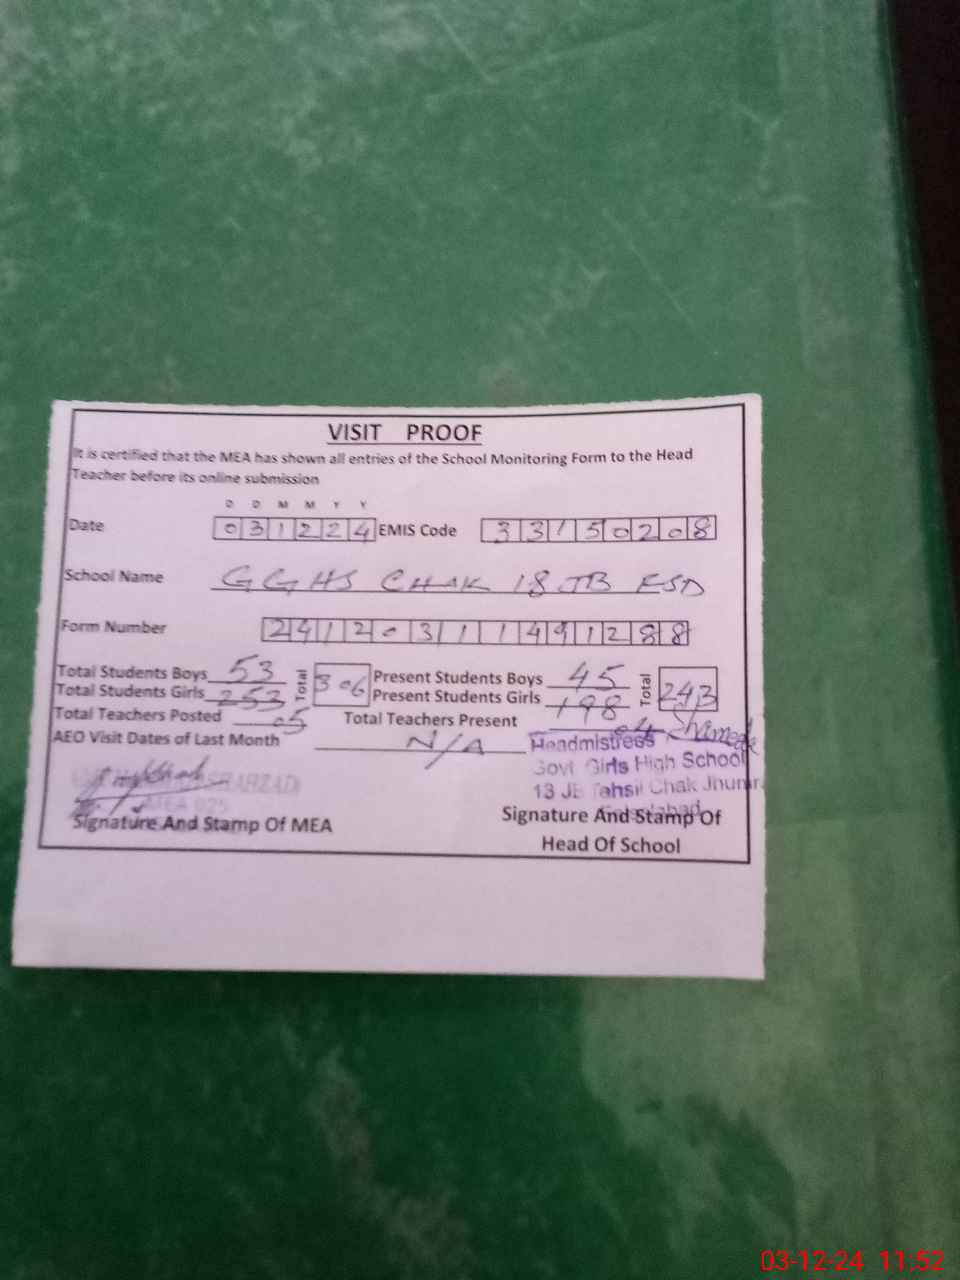 VISIT PROOF
It is certified that the MEA has shown all entries of the School Monitoring Form to the Head
Teacher before its online submission
D D M M Y Y
Date 031224 EMIS Code 33150208
School Name GGHS CHAK 18 JB FSD
Form Number 241203111491288
Total Students Boys 53 Total 306 Present Students Boys 45 Total 243
Total Students Girls 253 Present Students Girls 198
Total Teachers Posted 05 Total Teachers Present 04
AEO Visit Dates of Last Month N/A
Headmistress
Govt Girls High School
JB Tahsil Chak Jhumra
Faisalabad
SHAHZADI
MEA 025
Signature And Stamp Of MEA
Signature And Stamp Of
Head Of School
03-12-24 11:52